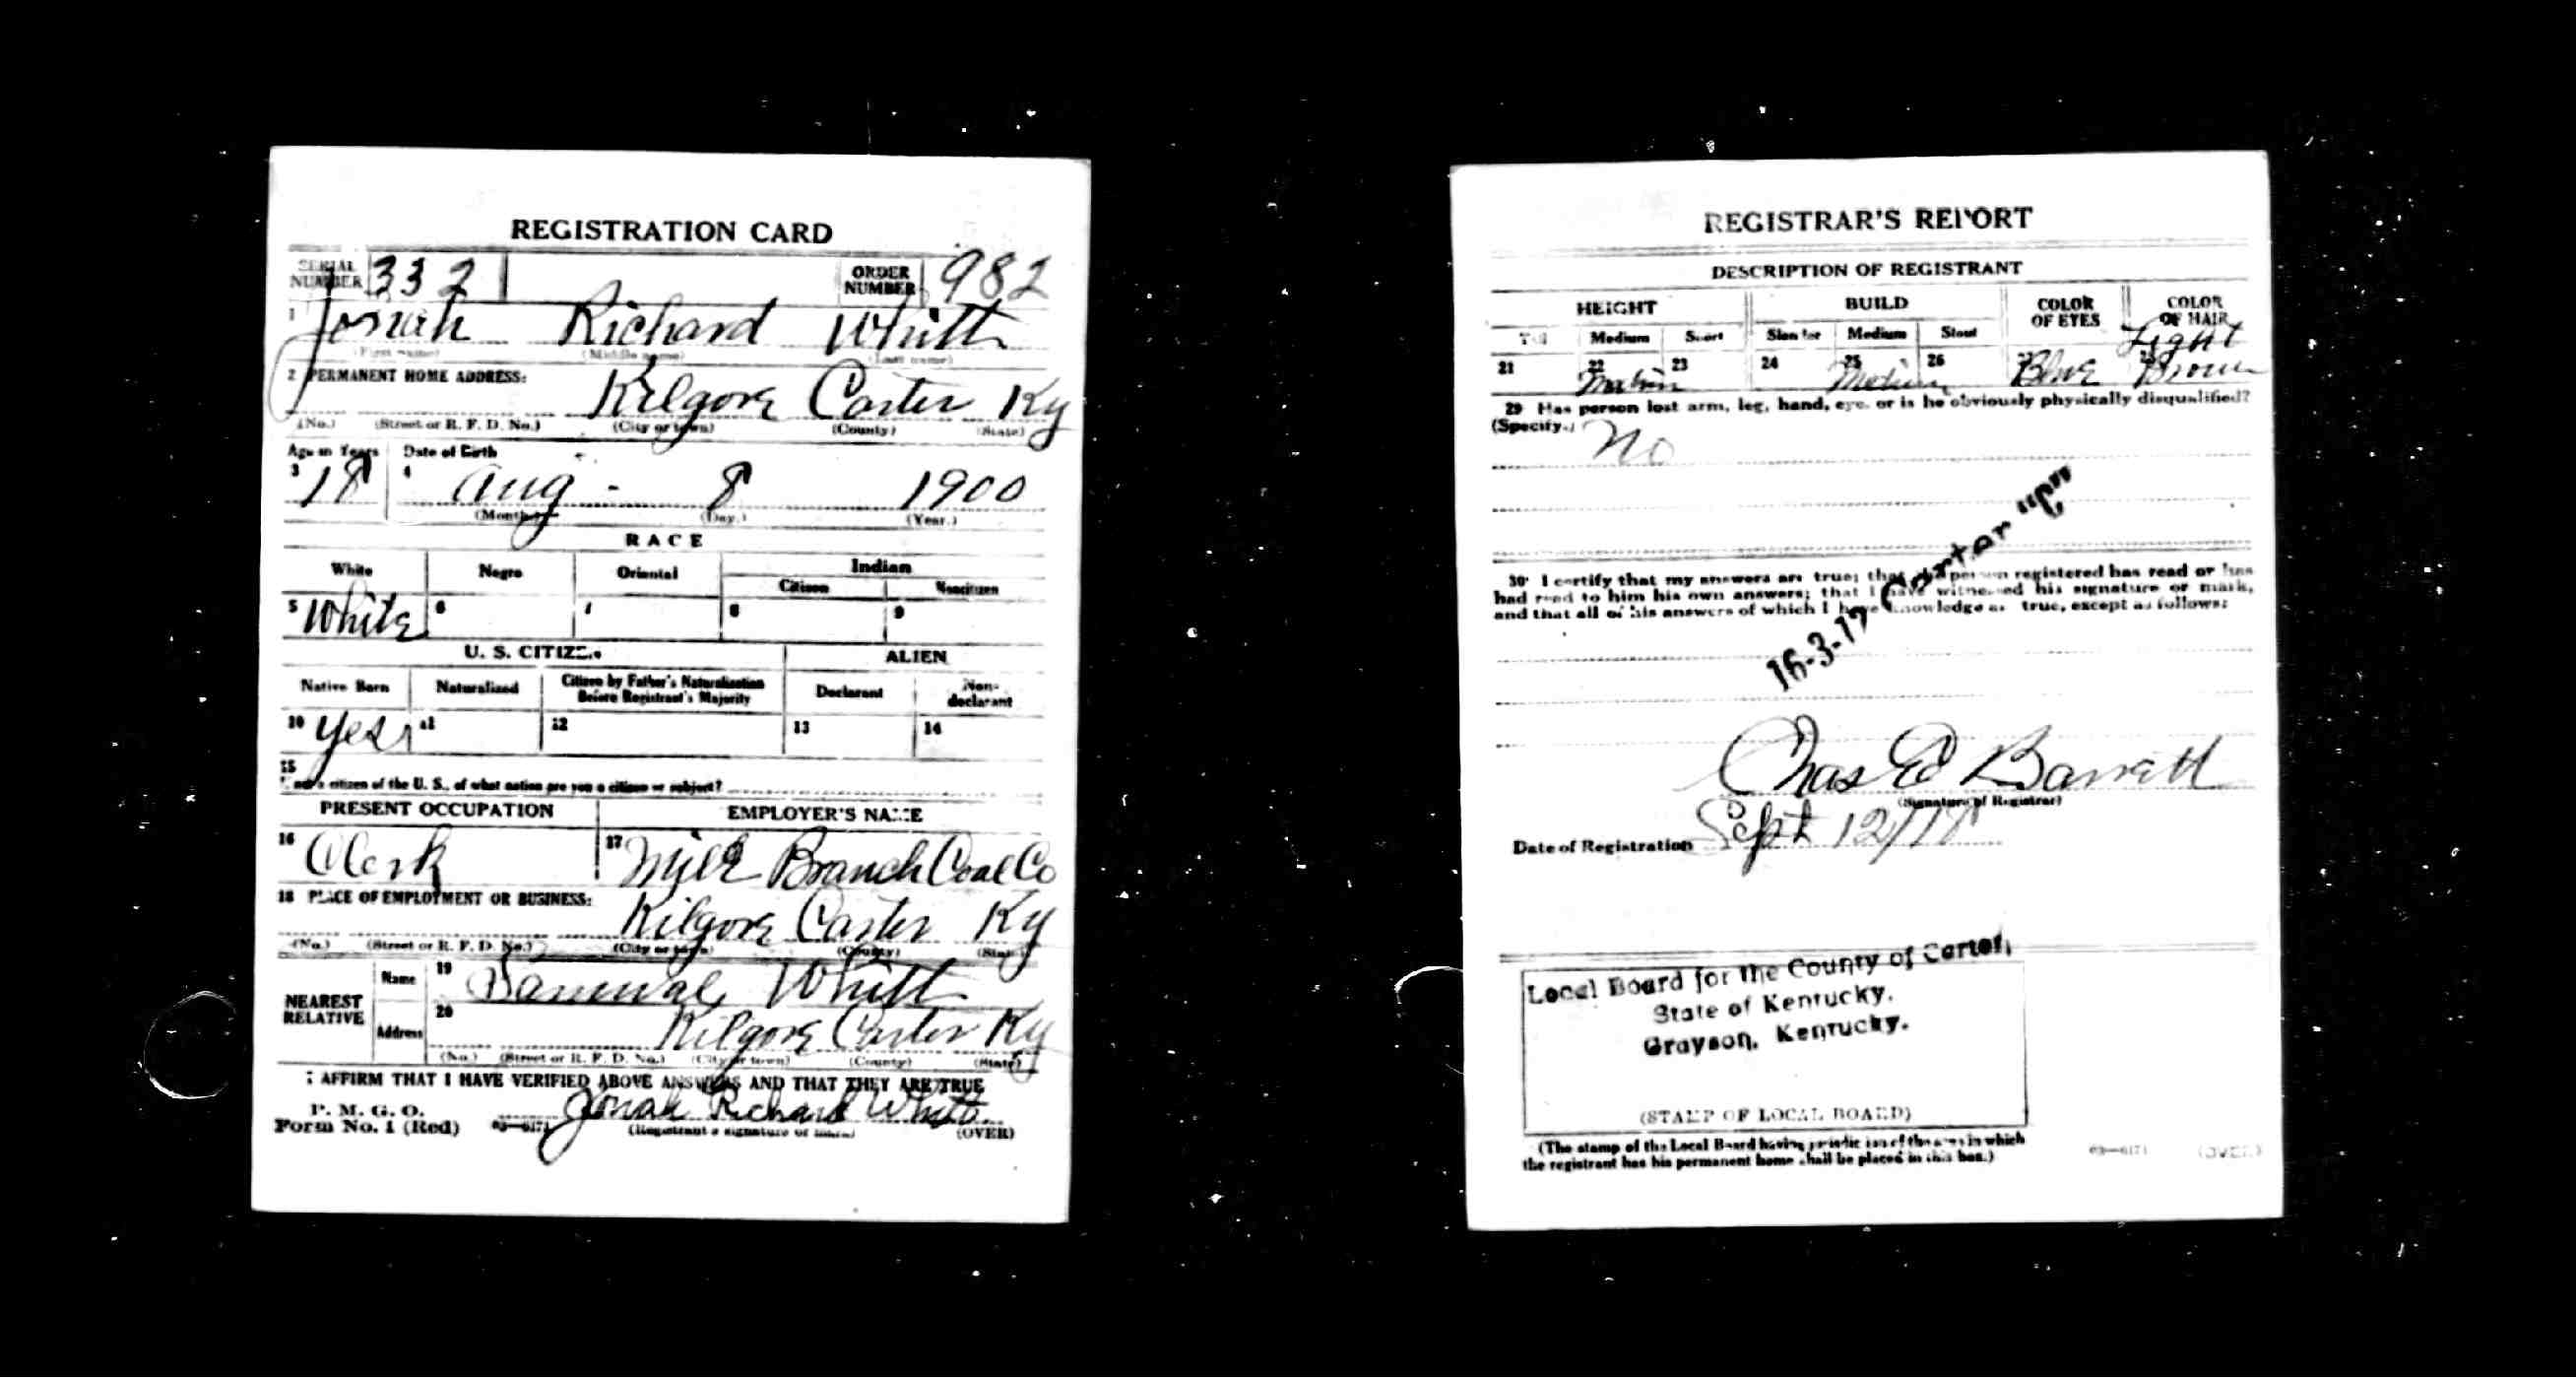 REGISTRATION CARD
SERIAL NUMBER 332 ORDER NUMBER 982
1 Jonah Richard Whitt
(First name) (Middle name) (Last name)
2 PERMANENT HOME ADDRESS:
Kilgore Carter Ky
(No.) (Street or R. F. D. No.) (City or town) (County) (State)
Age in Years Date of Birth
3 18 4 Aug - 8 1900
(Month.) (Day.) (Year.)
RACE
White Negro Oriental Indian
Citizen Noncitizen
5 White 6 7 8 9
U. S. CITIZEN ALIEN
Native Born Naturalized Citizen by Father's Naturalization Before Registrant's Majority Declarant Non-declarant
10 yes 11 12 13 14
15
not a citizen of the U. S., of what nation are you a citizen or subject?
PRESENT OCCUPATION EMPLOYER'S NAME
16 Clerk 17 Mile Branch Coal Co
18 PLACE OF EMPLOYMENT OR BUSINESS:
Kilgore Carter Ky
(No.) (Street or R. F. D. No.) (City or town) (County) (State)
NEAREST RELATIVE
Name 19 Whitt
Address 20 Kilgore Carter Ky
(No.) (Street or R. F. D. No.) (City or town) (County) (State)
I AFFIRM THAT I HAVE VERIFIED ABOVE ANSWERS AND THAT THEY ARE TRUE
P. M. G. O.
Form No. 1 (Red) 03—6171 Jonah Richard Whitt
(Registrant's signature or mark) (OVER)
REGISTRAR'S REPORT
DESCRIPTION OF REGISTRANT
HEIGHT BUILD COLOR OF EYES COLOR OF HAIR
Tall Medium Short Slender Medium Stout
21 22 Medium 23 24 25 Medium 26 27 Blue 28 Light Brown
29 Has person lost arm, leg, hand, eye, or is he obviously physically disqualified?
(Specify.) No
30 I certify that my answers are true; that the person registered has read or has
had read to him his own answers; that I have witnessed his signature or mark,
and that all of his answers of which I have knowledge are true, except as follows:
16-3-17 Carter "C"
Chas E Barrett
(Signature of Registrar)
Date of Registration Sept 12/18
Local Board for the County of Carter,
State of Kentucky.
Grayson, Kentucky.
(STAMP OF LOCAL BOARD)
(The stamp of the Local Board having jurisdiction of the area in which
the registrant has his permanent home shall be placed in this box.)
03—6171 (OVER)